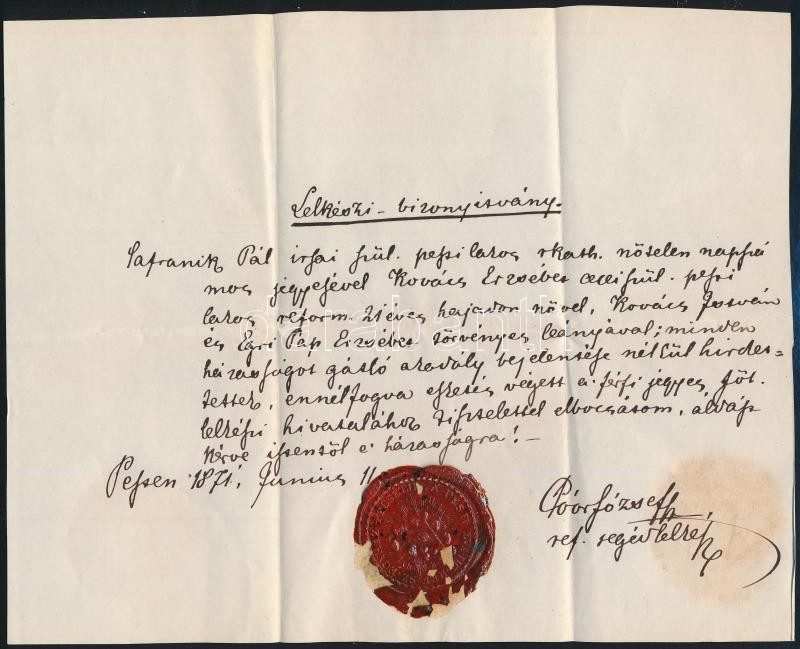 Lelkészi-bizonyitvány.
Safranik Pál irsai szül. pesti lakos rkath. nőtelen napszá
mos jegyesével Kovács Erzsébet szül. pesti
lakos reform. 21 éves hajadon nővel, Kovács István
és Egri Pap Erzsébet törvényes leányával; minden
házasságot gátló akadály bejelentése nélkül hirdet=
tettek, ennélfogva esketés végett a férfi jegyes
lelkészi hivatalához tisztelettel elbocsátom, áldást
kérve istentől e házasságra! -
Pesten 1871, Junius 11
Poór József
ref. segédlelkész
darabanth